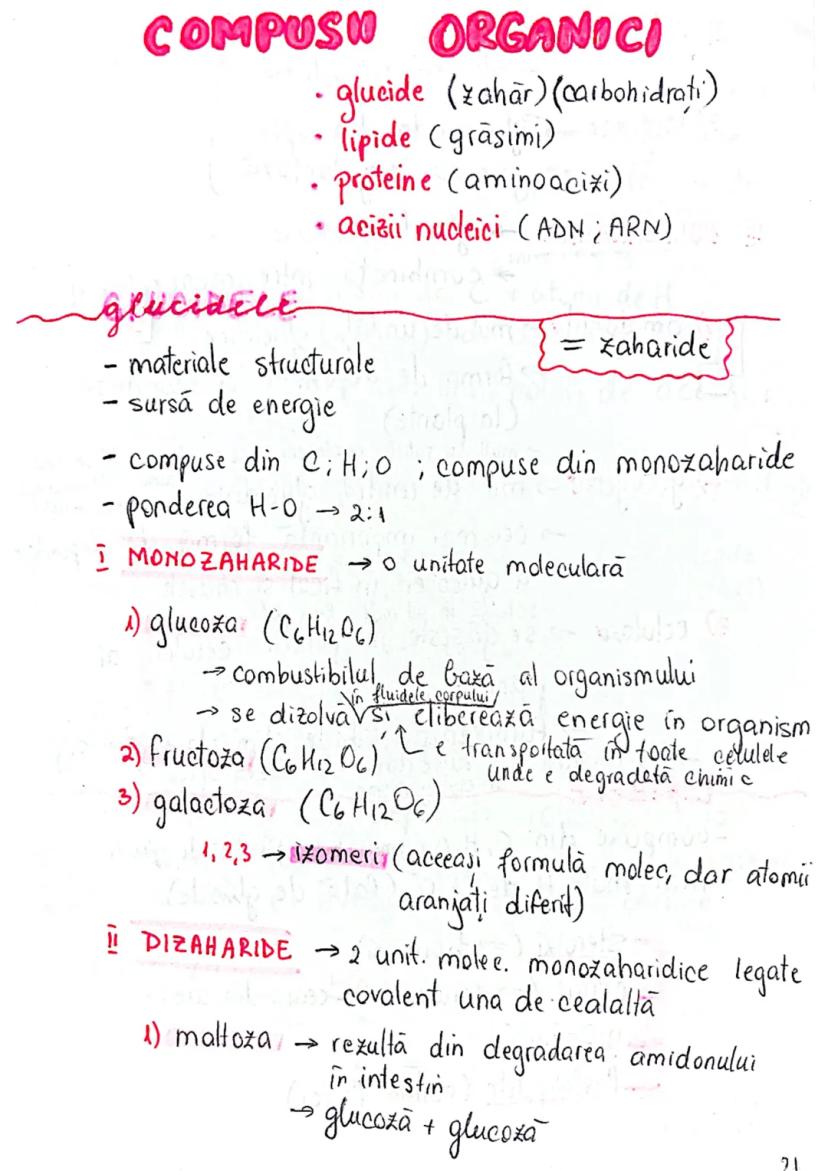 COMPUSII ORGANICI
• glucide (zahăr) (carbohidrați)
• lipide (grăsimi)
• proteine (aminoacizi)
• acizii nucleici (ADN ; ARN)
glucidele
= zaharide
- materiale structurale
- sursă de energie
- compuse din C; H; O ; compuse din monozaharide
- ponderea H-O → 2:1
I MONOZAHARIDE → o unitate moleculară
1) glucoza (C6H12O6)
→ combustibilul de bază al organismului
în fluidele corpului
→ se dizolvă și eliberează energie în organism
e transportată în toate celulele
unde e degradată chimic
2) fructoza (C6H12O6)
3) galactoza (C6H12O6)
1, 2, 3 → izomeri (aceeași formulă molec, dar atomii
aranjați diferit)
II DIZAHARIDE → 2 unit. molec. monozaharidice legate
covalent una de cealaltă
1) maltoza → rezultă din degradarea amidonului
în intestin
→ glucoză + glucoză
21